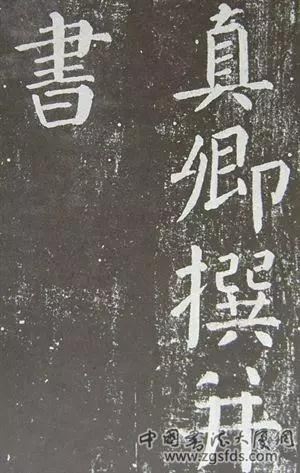 真卿撰并
書
中國書法大展网
www.zgsfds.com